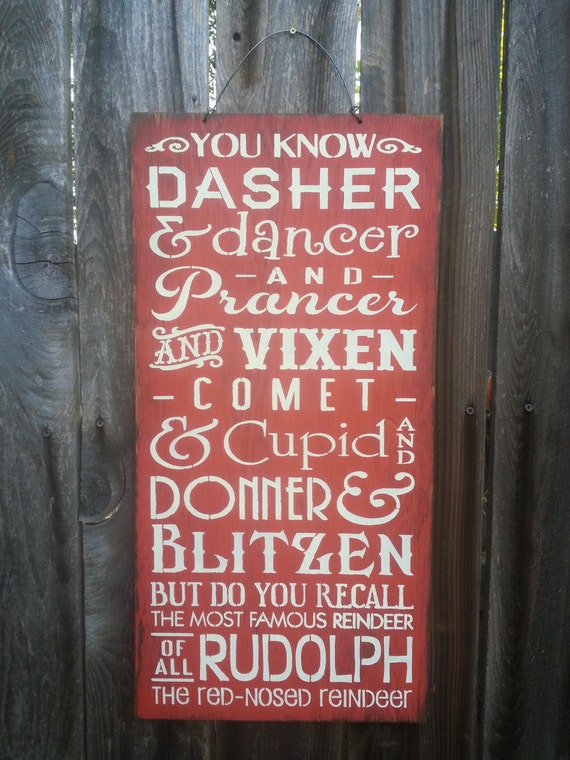 YOU KNOW
DASHER
& dancer
- AND -
Prancer
AND VIXEN
- COMET -
& Cupid AND
DONNER &
BLITZEN
BUT DO YOU RECALL
THE MOST FAMOUS REINDEER
OF ALL RUDOLPH
THE RED-NOSED REINDEER